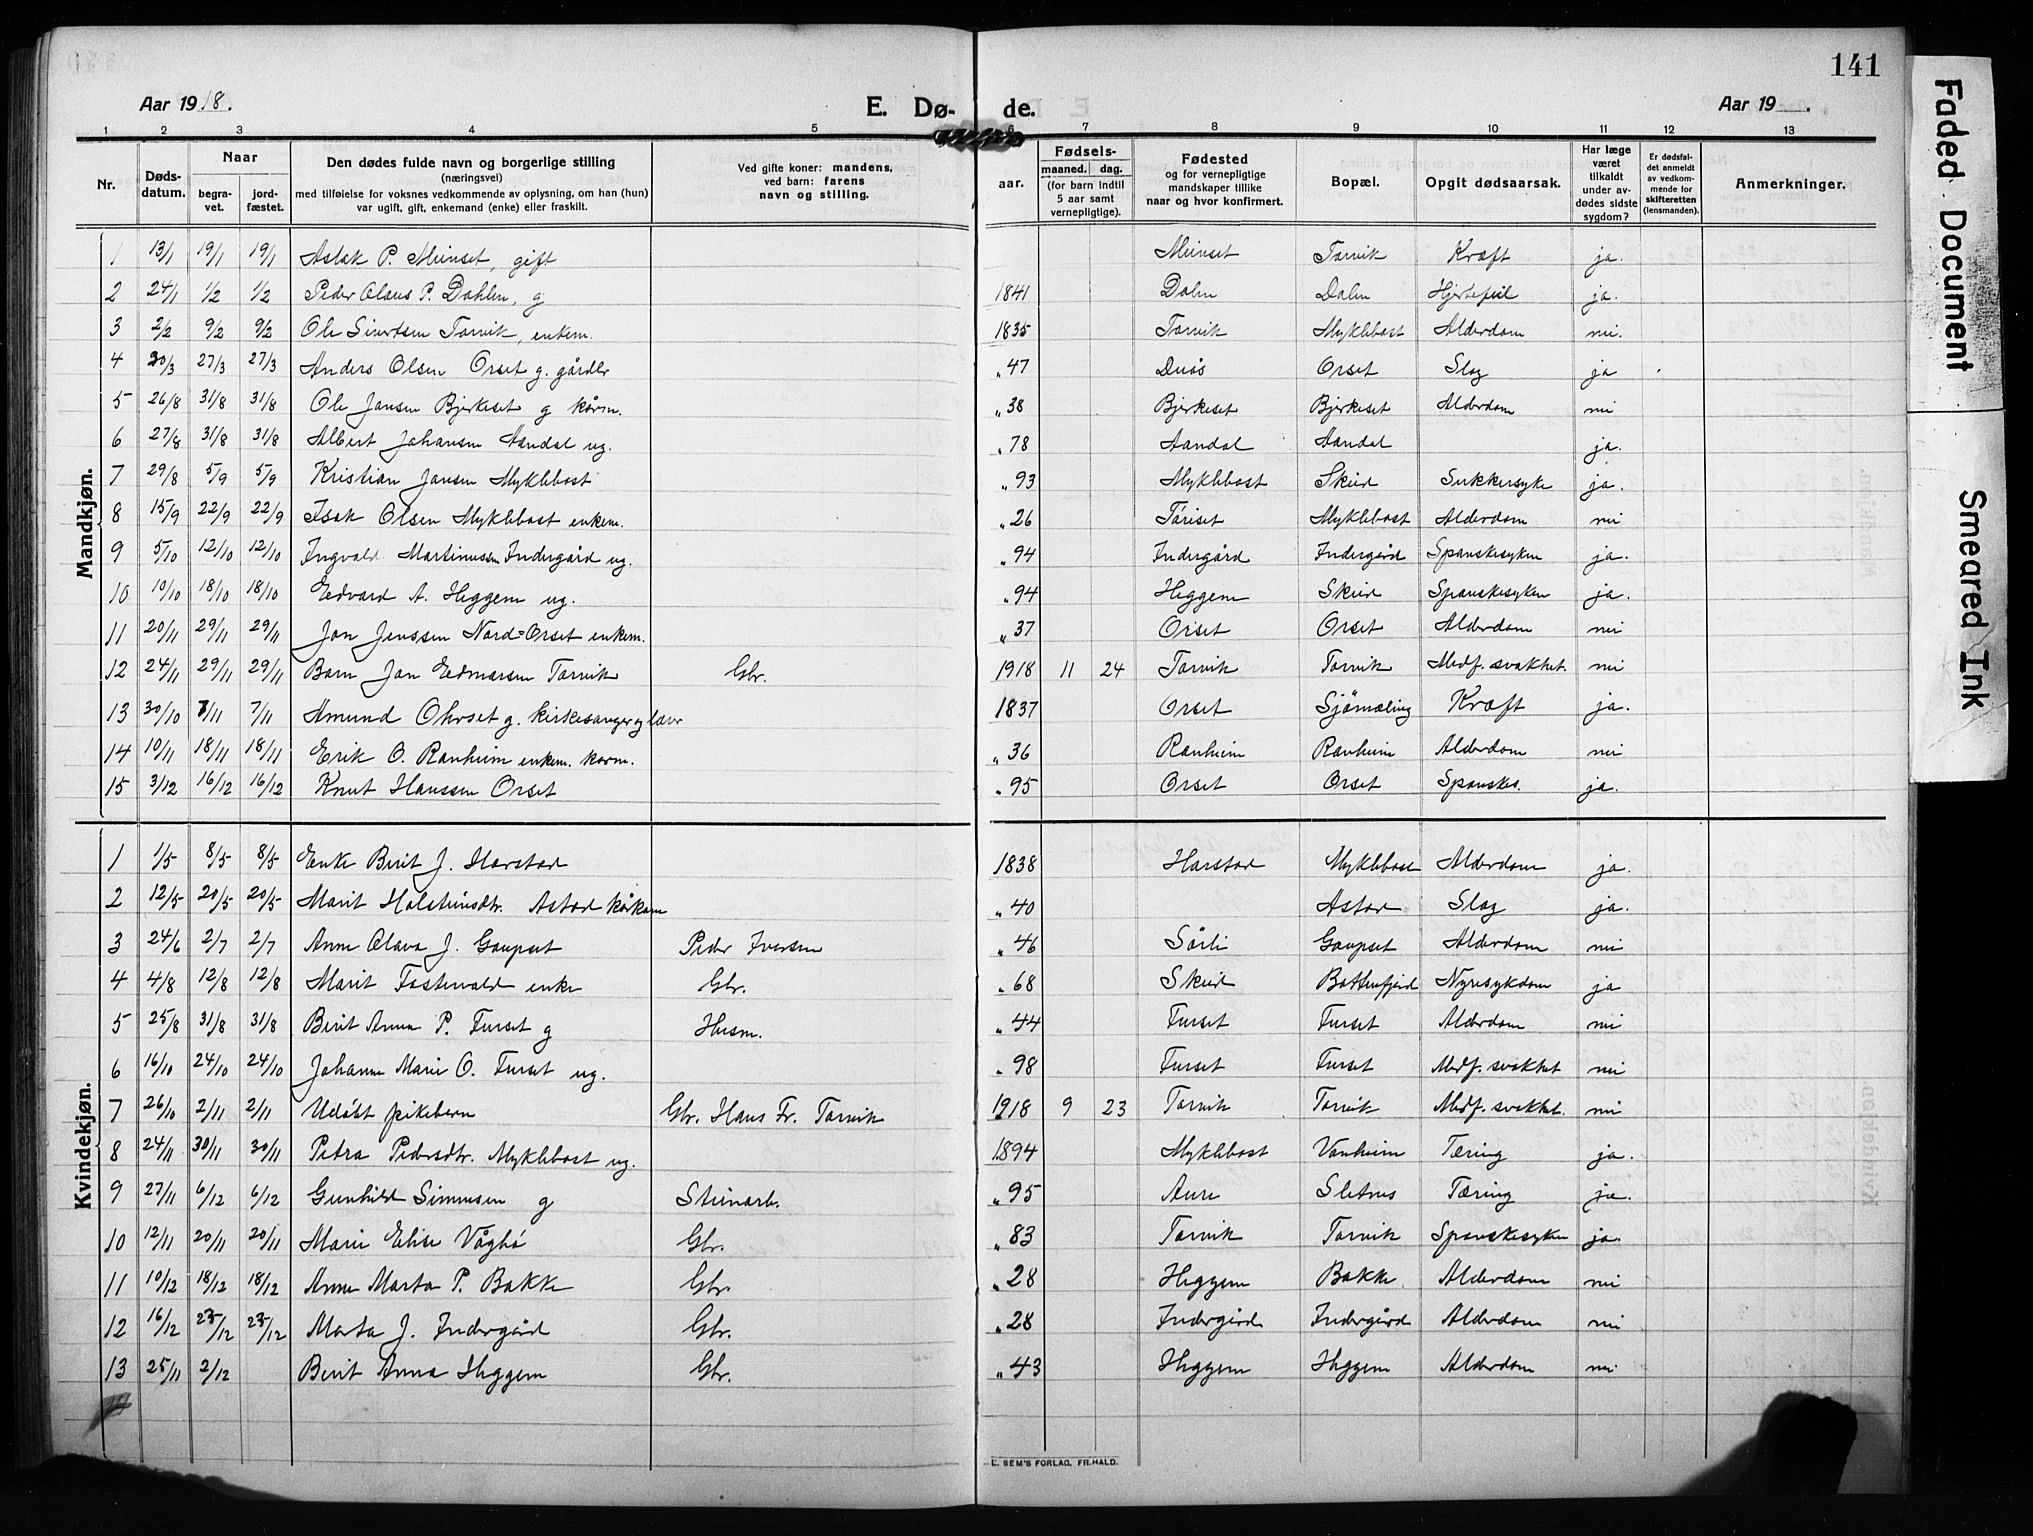 141
Aar 1918.
E. Dø- de.
Aar 19 .
1 2 3 4 5 6 7 8 9 10 11 12 13
Nr.
Døds-datum.
Naar
begra-vet.
jord-fæstet.
Den dødes fulde navn og borgerlige stilling
(næringsvei)
med tilføielse for voksnes vedkommende av oplysning, om han (hun)
var ugift, gift, enkemand (enke) eller fraskilt.
Ved gifte koner: mandens,
ved barn: farens
navn og stilling.
Fødsels-
aar.
maaned. dag.
(for barn indtil
5 aar samt
vernepligtige).
Fødested
og for vernepligtige
mandskaper tillike
naar og hvor konfirmert.
Bopæl.
Opgit dødsaarsak.
Har læge
været
tilkaldt
under av-
dødes sidste
sygdom?
Er dødsfal-
det anmeldt
av vedkom-
mende for
skifteretten
(lensmanden).
Anmerkninger.
Mandkjøn.
1 13/1 19/1 19/1 Aslak P. Meinset, gift Meinset Torvik Kræft ja.
2 24/1 1/2 1/2 Peder Olaus P. Dahlen, g 1841 Dalen Dalen Hjertefeil ja.
3 2/2 9/2 9/2 Ole Sivertsen Torvik, enkem. 1835 Torvik Myklebost Alderdom nei.
4 20/3 27/3 27/3 Anders Olsen Orset g. gårdbr „ 47 Orset Slag ja
5 26/8 31/8 31/8 Ole Jansen Bjerkeset g kårm. „ 38 Bjerkeset Bjerkeset Alderdom nei
6 27/8 31/8 31/8 Albert Johansen Aandal ug. „ 78 Aandal Aandal ja.
7 29/8 5/9 5/9 Kristian Jansen Myklebost „ 93 Myklebost Skeid Sukkersyke ja.
8 15/9 22/9 22/9 Isak Olsen Myklebost enkem. „ 26 Töriset Myklebost Alderdom nei
9 5/10 12/10 12/10 Ingvald Martinussen Indergård ug. „ 94 Indergård Indergård Spanskesyken ja.
10 10/10 18/10 18/10 Edvard A. Heggem ug. „ 94 Heggem Skeid Spanskesyken ja.
11 20/11 29/11 29/11 Jon Jenssen Nord=Orset enkem. „ 37 Orset Orset Alderdom nei
12 24/11 29/11 29/11 Barn Jon Edmarsen Torvik Gbr. 1918 11 24 Torvik Torvik Medf. svakhet. nei
13 30/10 7/11 7/11 Amund Ohrset g. kirkesanger og lær 1837 Orset Sjömæling Kræft ja.
14 10/11 18/11 18/11 Erik O. Ranheim enkem. kårm. „ 36 Ranheim Ranheim Alderdom nei
15 3/12 16/12 16/12 Knut Hanssen Orset „ 95 Orset Orset Spanskes. ja.
Kvindekjøn.
1 1/5 8/5 8/5 Enke Berit J. Harstad 1838 Harstad Myklebost Alderdom ja.
2 12/5 20/5 20/5 Marit Holsteinsdtr. Astad kårkone „ 40 Astad Slag ja.
3 24/6 2/7 2/7 Anne Olava J. Gaupset Peder Iversen „ 46 Sörli Gaupset Alderdom nei
4 4/8 12/8 12/8 Marit Fostervold enke Gbr. „ 68 Skeid Battenfjord Nyresykdom ja
5 25/8 31/8 31/8 Berit Anna P. Furset g Husm. „ 44 Furset Furset Alderdom nei
6 16/10 24/10 24/10 Johanne Marie O. Furset ug. „ 98 Furset Furset Medf. svakhet nei
7 26/10 2/11 2/11 Udöbt pikebarn Gbr. Hans Fr. Torvik 1918 9 23 Torvik Torvik Medf. svakhet. nei
8 24/11 30/11 30/11 Petra Pedersdtr. Myklebost ug. 1894 Myklebost Vanheim Tæring ja.
9 27/11 6/12 6/12 Gunhild Simensen g Steinarb. „ 95 Aure Sletnes Tæring ja.
10 12/11 20/11 20/11 Marie Elise Vågbö Gbr. „ 83 Torvik Torvik Spanskesyken ja.
11 10/12 18/12 18/12 Anne Marta P. Bakke Gbr. „ 28 Heggem Bakke Alderdom nei
12 16/12 23/12 23/12 Marta J. Indergård Gbr. „ 28 Indergård Indergård Alderdom nei
13 25/11 2/12 Berit Anna Heggem Gbr. „ 43 Heggem Heggem Alderdom nei
E. SEM'S FORLAG, FR.HALD.
Faded Document
Smeared Ink